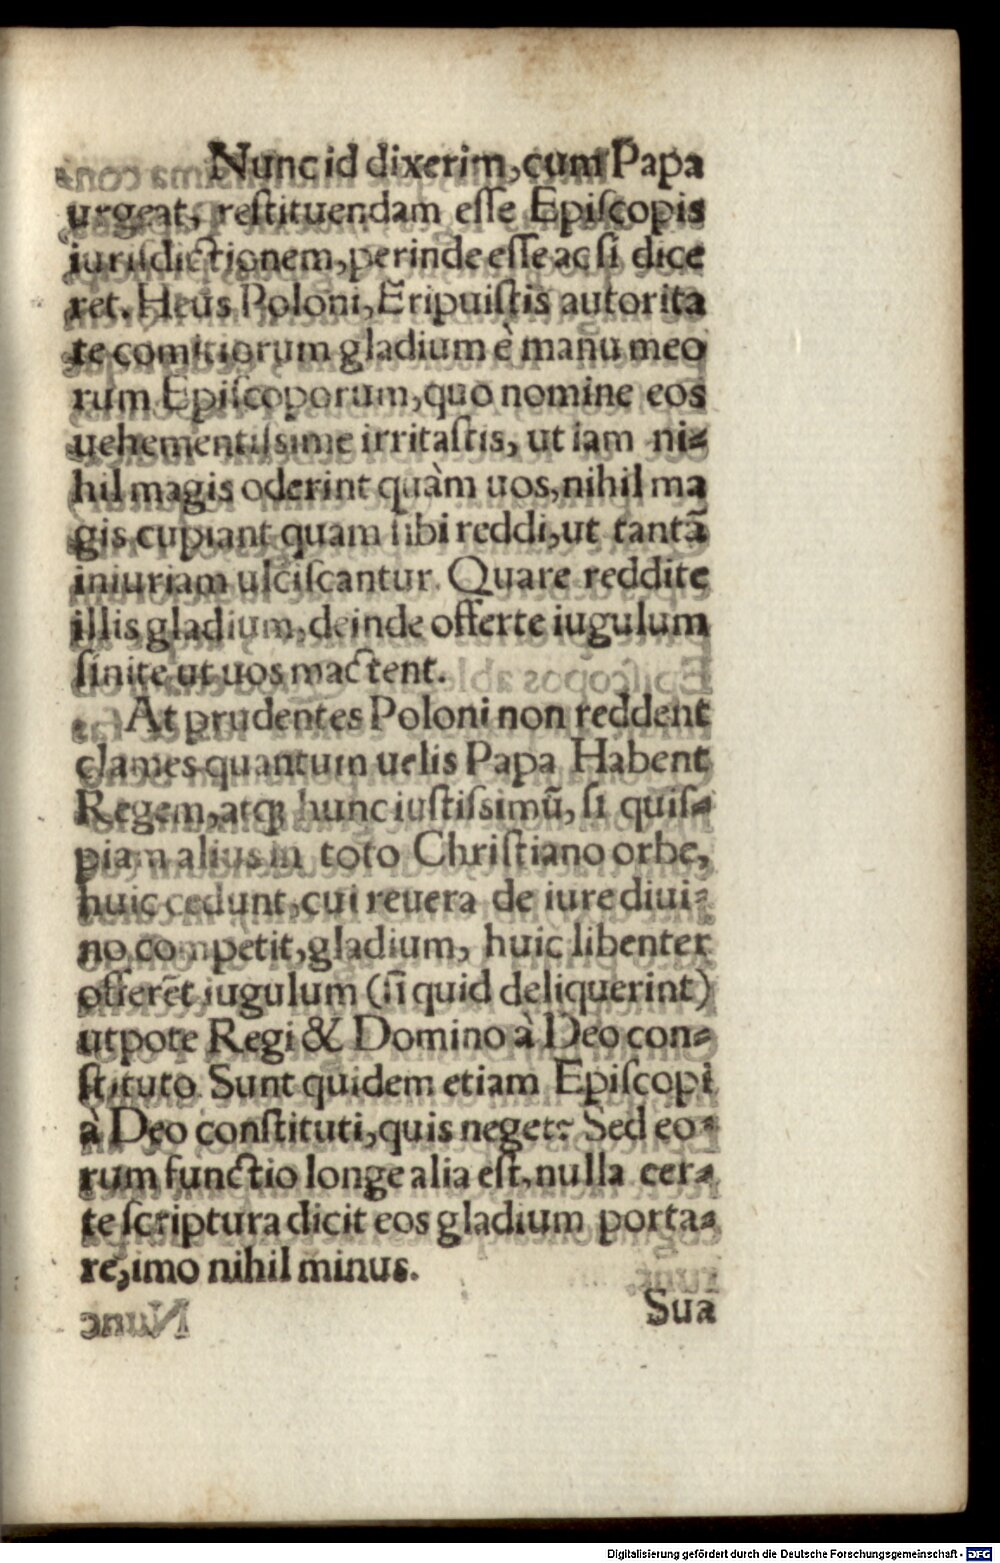 Nunc id dixerim, cum Papa
urgeat, restituendam esse Episcopis
iurisdictionem, perinde esse ac si dice
ret. Heus Poloni, Eripuistis autorita
te comitiorum gladium è manu meo
rum Episcoporum, quo nomine eos
uehementissime irritastis, ut iam ni-
hil magis oderint quàm uos, nihil ma
gis cupiant quam sibi reddi, ut tantã
iniuriam ulciscantur. Quare reddite
illis gladium, deinde offerte iugulum
sinite ut uos mactent.
At prudentes Poloni non reddent
clames quantum uelis Papa Habent
Regem, atq; hunc iustissimũ, si quis-
piam alius in toto Christiano orbe,
huic cedunt, cui reuera de iure diui-
no competit, gladium, huic libenter
offerẽt iugulum (si quid deliquerint)
utpote Regi & Domino à Deo con-
stituto. Sunt quidem etiam Episcopi
à Deo constituti, quis neget? Sed eo-
rum functio longe alia est, nulla cer-
te scriptura dicit eos gladium porta-
re, imo nihil minus.
Sua
Digitalisierung gefördert durch die Deutsche Forschungsgemeinschaft - DFG